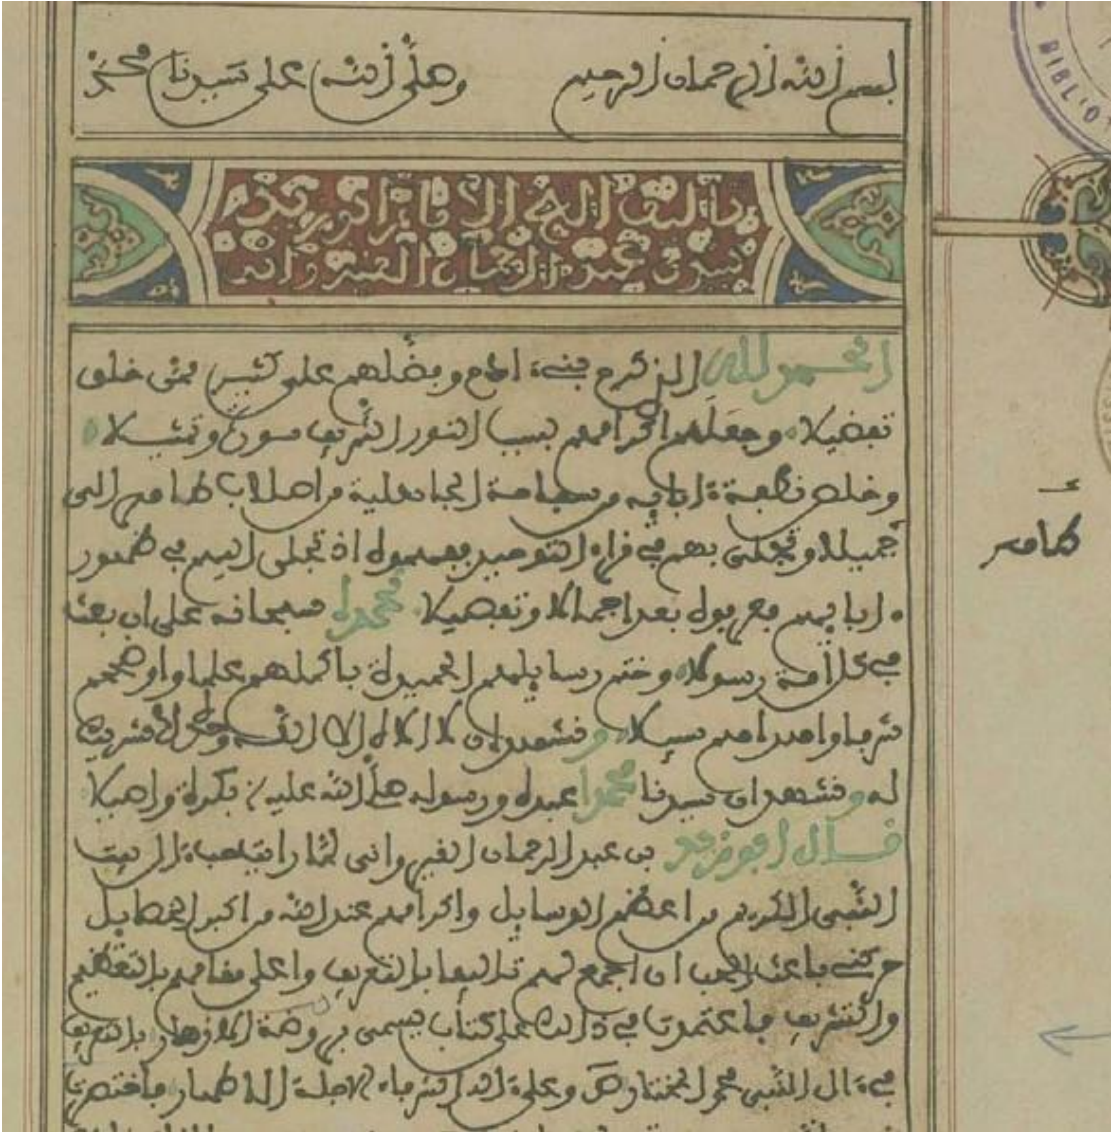 بسم الله الرحمان الرحيم وصلى الله على سيدنا محمد
تاليف الشيخ الامام ابو زيد
سيدي عبد الرحمان الفيرواني
الحمد لله الذي كرم بني ءادم وفضلهم على كثير ممن خلق
تفضيلا وجعلهم اكرامهم بسبب النور الشريف صون وتمثيلا
وخلص نطفة ءابايه من سفاحة الجاهلية من اصلاب طاهر الى
جميلا وتجلى بهم في التوحيد اذ تجلى اليهم في ظهور
ءابايهم بعد اجمالا وتفصيلا نحمده سبحانه على ان بعث
في كل امة رسولا وختم رسايلهم الحميدة باكملهم علما واوضحهم
شرعا واهداهم سبيلا ونشهد ان لا الاه الا الله وحده لا شريك
له ونشهد ان سيدنا محمدا عبده ورسوله صلى الله عليه بكرة واصيلا
قال ابو زيد بن عبد الرحمان الفيرواني لما رايت محبة ال البيت
النبي الكريم من اعظم الوسايل واكرامهم عند الله من اكبر الخصايل
حركني باعث الحب ان اجمع لهم تاليفا بالتعريف واعلى مقامهم بالتعظيم
والتشريف فاعتمدت في ذالك على كتاب يسمى بروضة الازهار بالتعريف
في ءال النبي محمد المختار وعلى الاجلة الاطهار فاختصرت
طاهر
BIBLIO